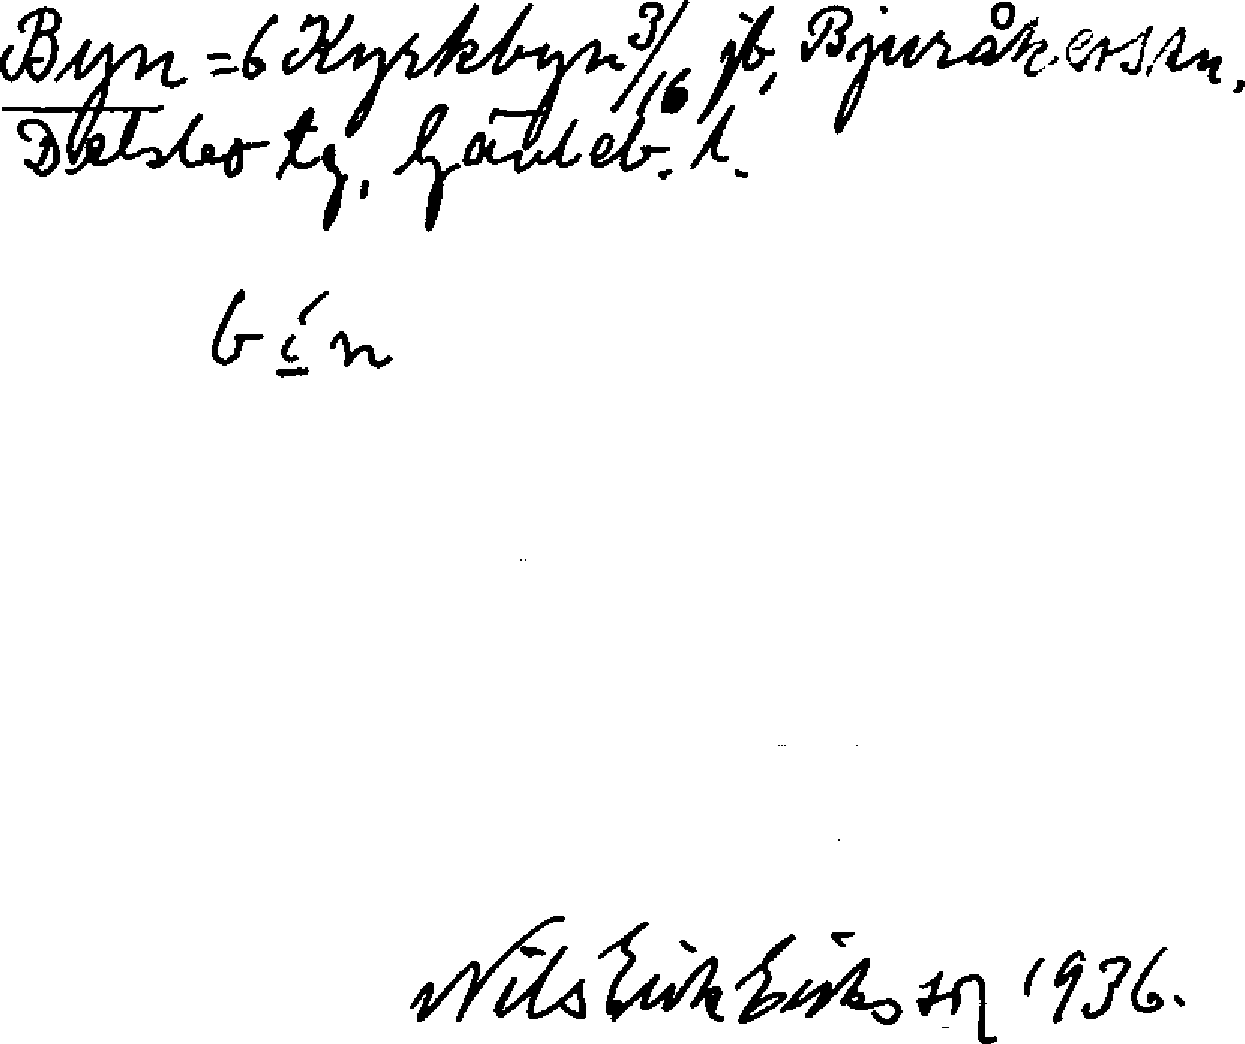 Byn = 6 Kyrkbyn 3/16 jb, Bjuråkers sn,
Delsbo tg, Gävleb. l.
bín
Nils Erik Eriksson 1936.